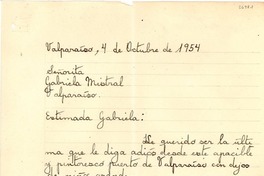 Valparaíso, 4 de Octubre de 1954
Señorita
Gabriela Mistral
Valparaíso.
Estimada Gabriela:
He querido ser la últi
ma que le diga adiós desde este apacible
y pintoresco puerto de Valparaíso con ojos